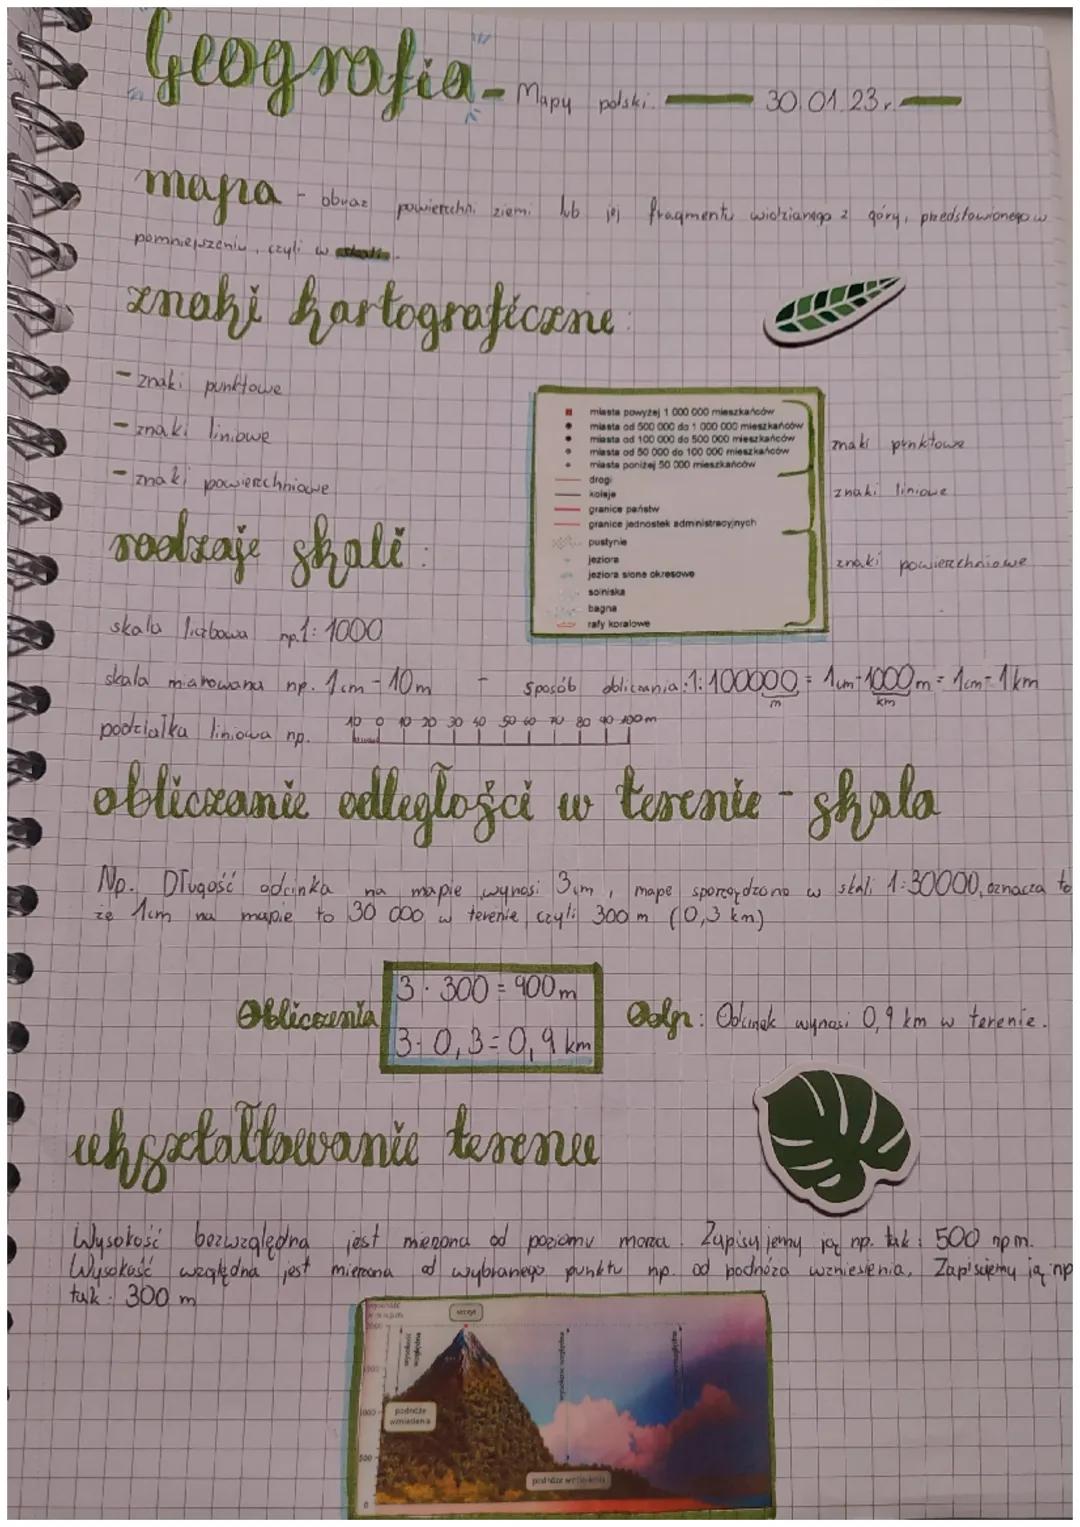 Geografia - Mapy polski. 30.01.23r.
mapa - obraz powierzchni ziemi lub jej fragmentu widzianego z góry, przedstawionego w
pomniejszeniu, czyli w skali.
znaki kartograficzne:
- znaki punktowe
- znaki liniowe
- znaki powierzchniowe
miasta powyżej 1 000 000 mieszkańców
miasta od 500 000 do 1 000 000 mieszkańców
miasta od 100 000 do 500 000 mieszkańców
miasta od 50 000 do 100 000 mieszkańców
miasta poniżej 50 000 mieszkańców
drogi
koleje
granice państw
granice jednostek administracyjnych
pustynie
jeziora
jeziora słone okresowe
solniska
bagna
rafy koralowe
znaki punktowe
znaki liniowe
znaki powierzchniowe
rodzaje skali:
skala liczbowa np. 1:1000
skala mianowana np. 1cm - 10m - sposób obliczania: 1:100000 = 1cm-1000m = 1cm-1km
m km
podziałka liniowa np. 10 0 10 20 30 40 50 60 70 80 90 100m
obliczanie odległości w terenie - skala
Np. Długość odcinka na mapie wynosi 3cm, mapę sporządzono w skali 1:30000, oznacza to
że 1cm na mapie to 30 000 w terenie, czyli 300 m (0,3 km)
Obliczenia
3 · 300 = 900m
3 · 0,3 = 0,9 km
Odp: Odcinek wynosi 0,9 km w terenie.
ukształtowanie terenu
Wysokość bezwzględna jest mierzona od poziomu morza. Zapisujemy ją np. tak: 500 npm.
Wysokość względna jest mierzona od wybranego punktu np. od podnóża wzniesienia. Zapisujemy ją np
tak: 300 m
wysokość
w m n.p.m.
szczyt
2000
1500
1000
500
0
wysokość względna
wysokość względna
podnóże
wzniesienia
podnóże wzniesienia